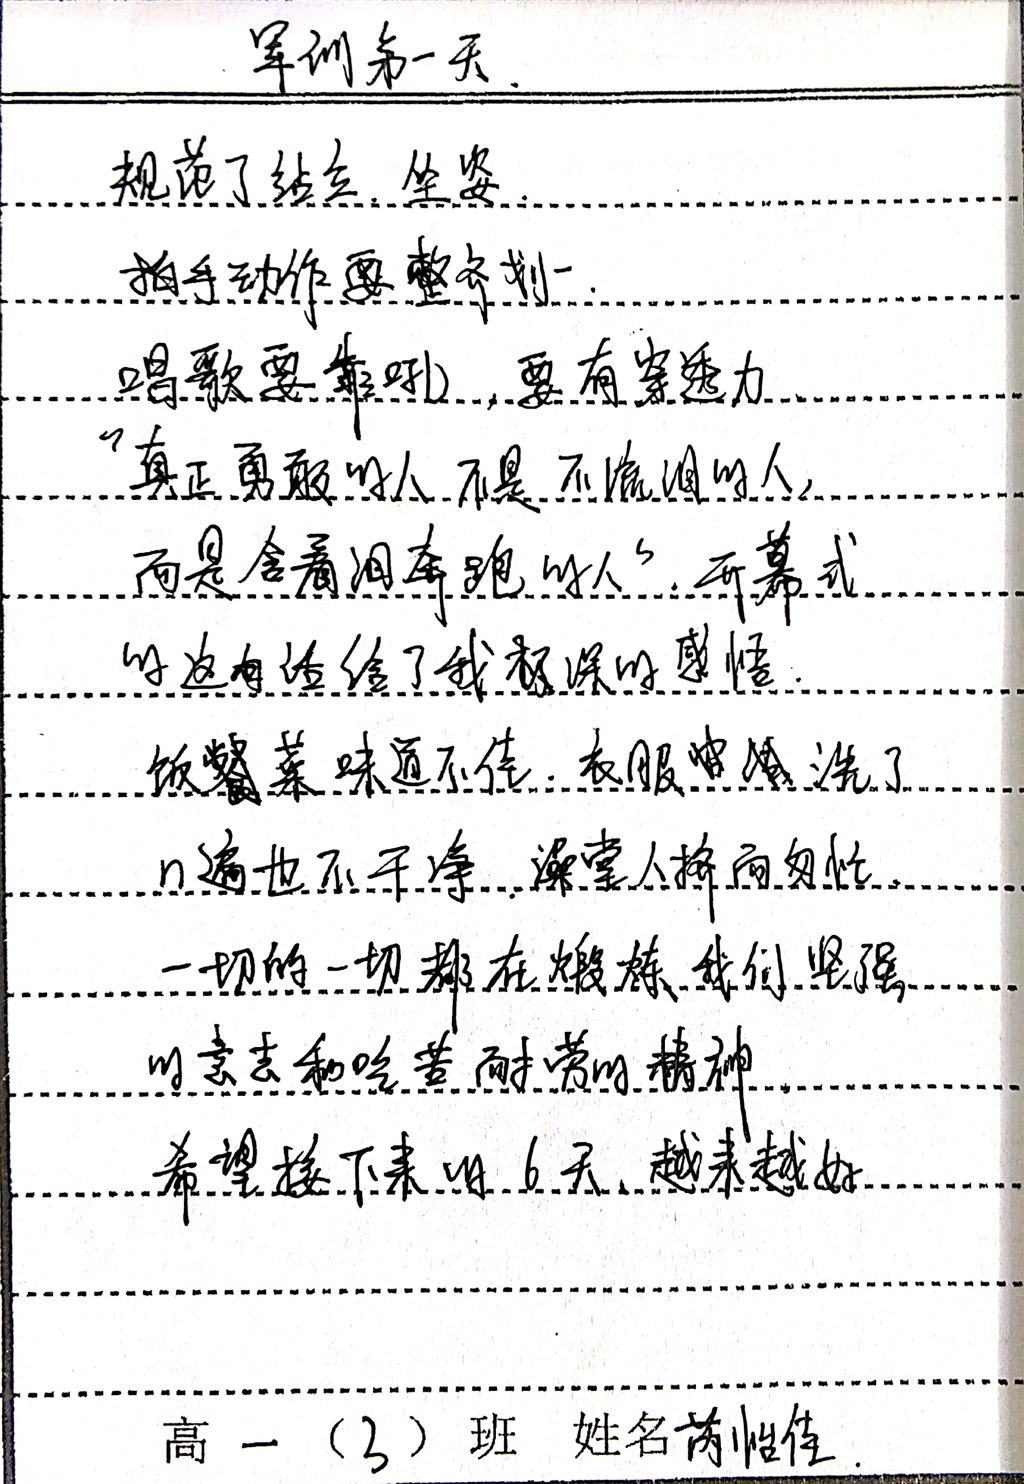 军训第一天.
规范了站立、坐姿.
拍手动作要整齐划一.
唱歌要靠吼，要有穿透力
“真正勇敢的人不是不流泪的人，
而是含着泪奔跑的人”. 开幕式
的这句话给了我极深的感悟.
饭餐菜味道不佳. 衣服 洗了
n遍也不干净. 澡堂人挤而匆忙.
一切的一切都在煅炼我们坚强
的意志和吃苦耐劳的精神.
希望接下来的6天，越来越好
高一（3）班 姓名芮怡佳.